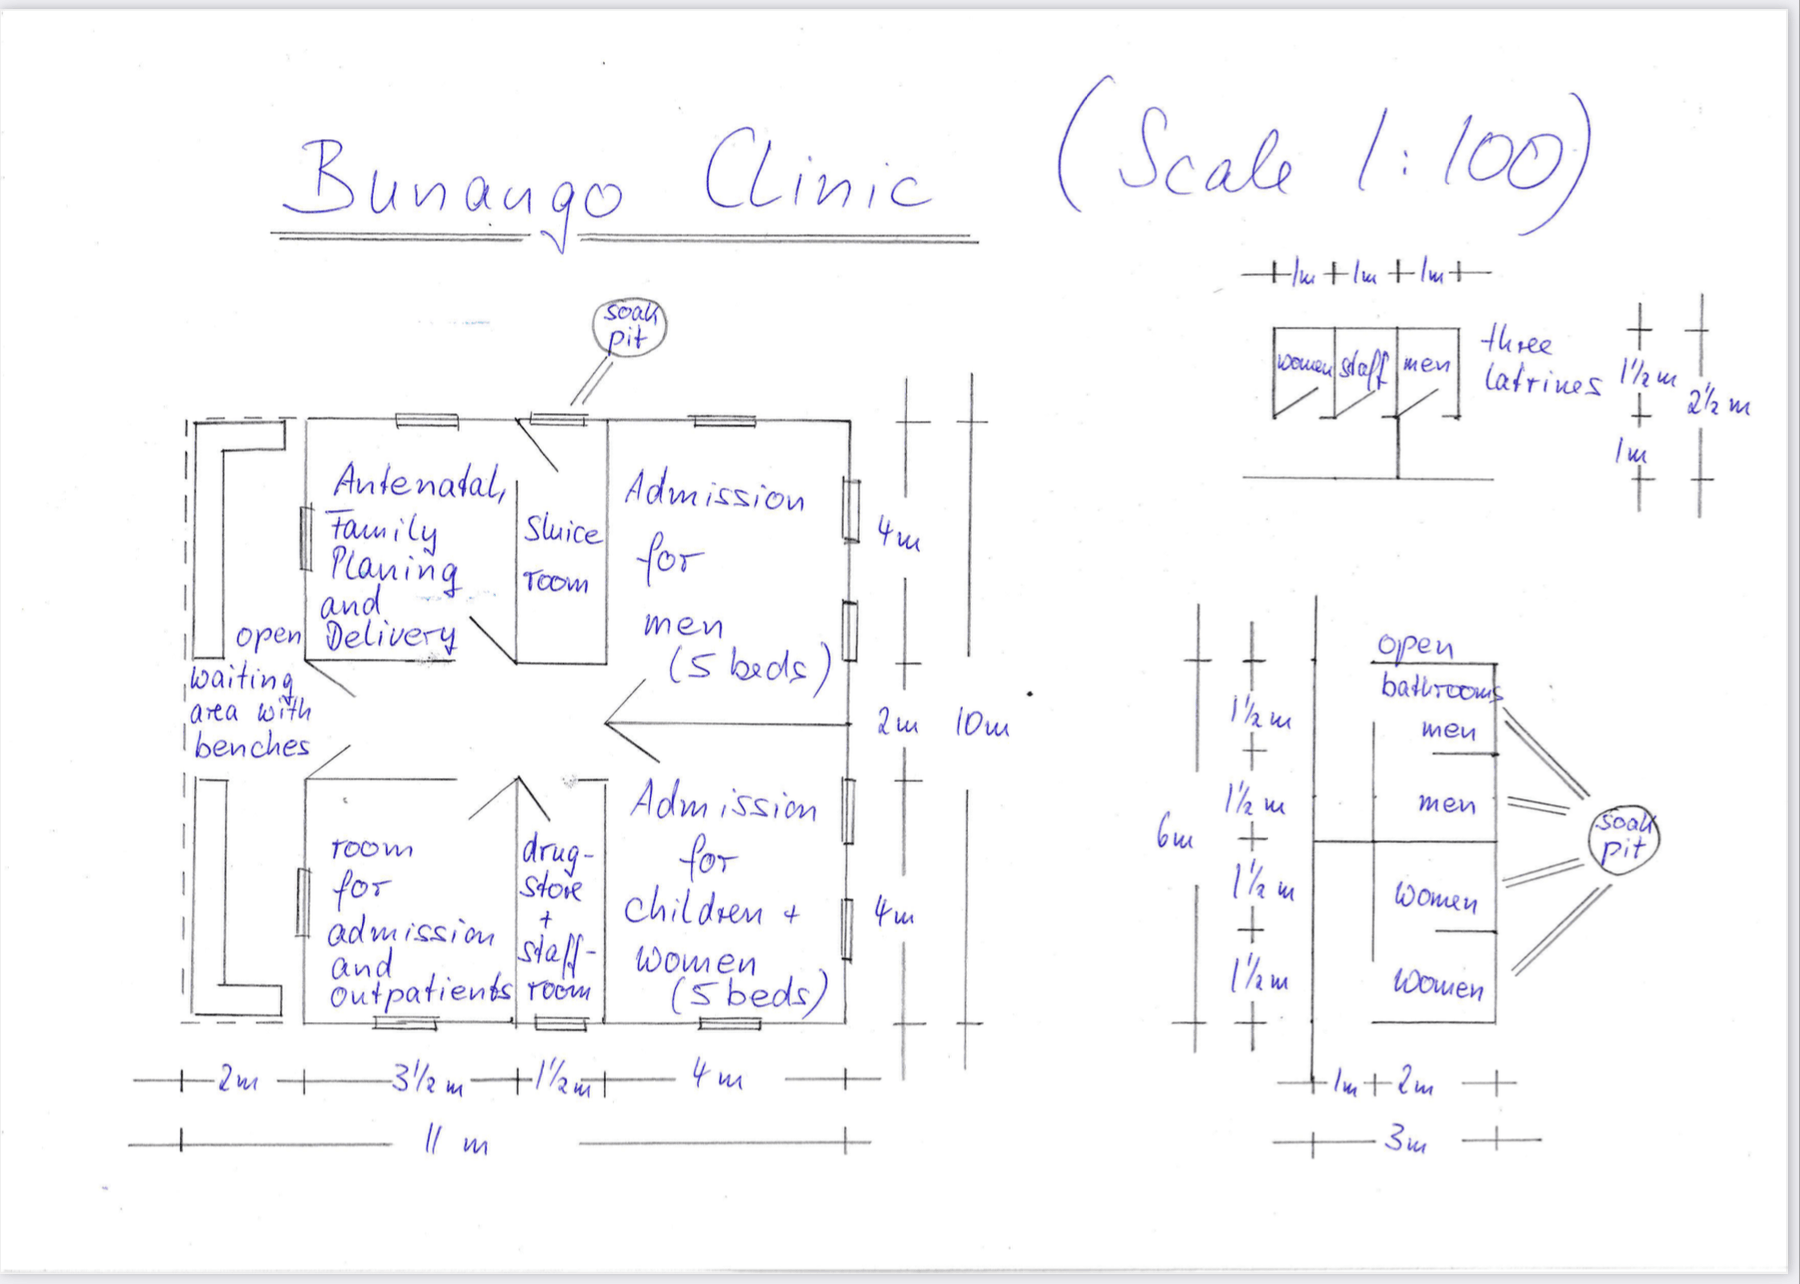 Bunango Clinic
(Scale 1:100)
soak
pit
Antenatal,
Family
Planing
and
Delivery
Sluice
room
Admission
for
men
(5 beds)
open
waiting
area with
benches
room
for
admission
and
outpatients
drug-
store
+
staff-
room
Admission
for
children +
women
(5 beds)
4m
2m
4m
10m
2m
3½ m
1½ m
4 m
11 m
1m 1m 1m
women staff men
three
latrines
1½ m
1m
2½ m
open
bathrooms
men
men
women
women
soak
pit
1½ m
1½ m
1½ m
1½ m
6m
1m 2m
3m